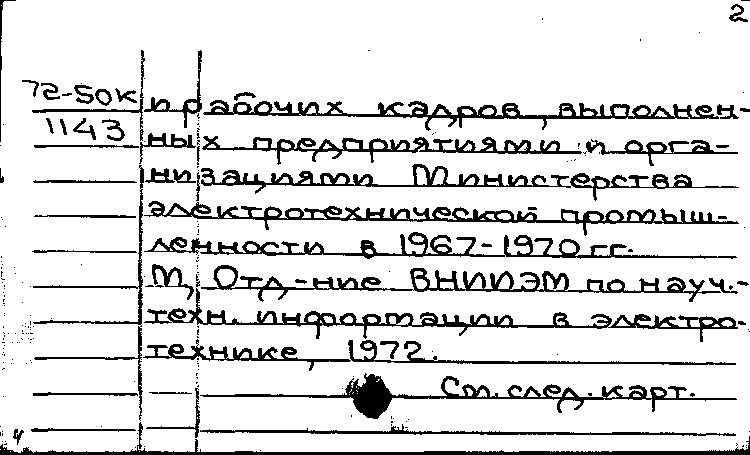 2
72-50к
1143
и рабочих кадров, выполнен-
ных предприятиями и орга-
низациями Министерства
электротехнической промыш-
ленности в 1967-1970 гг.
М., Отд-ние ВНИИЭМ по науч.-
техн. информации в электро-
технике, 1972.
См. след. карт.
4